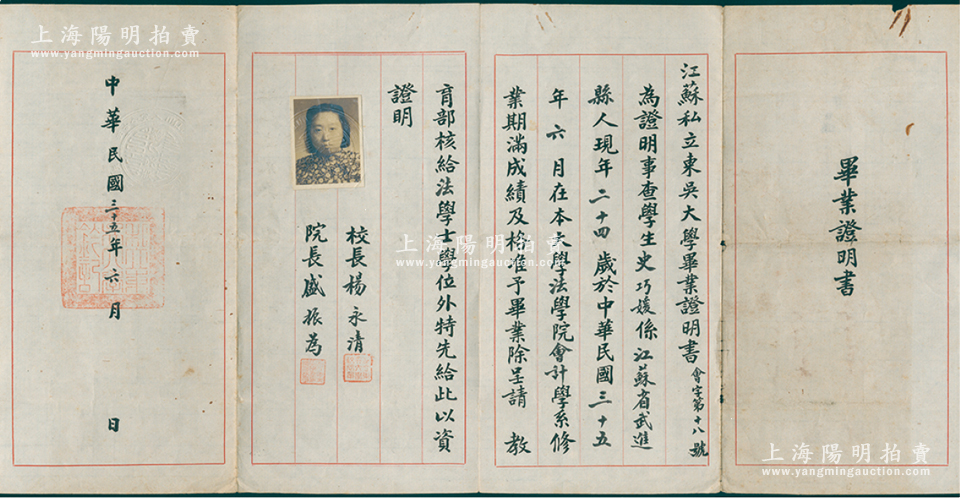 畢業證明書
江蘇私立東吳大學畢業證明書 會字第十八號
為證明事查學生史巧媛係江蘇省武進
縣人現年二十四歲於中華民國三十五
年六月在本大學法學院會計學系修
業期滿成績及格准予畢業除呈請 教
育部核給法學士學位外特先給此以資
證明
校長楊永清
院長盛振為
中華民國三十五年六月 日
上海陽明拍賣
www.yangmingauction.com
上海陽明拍賣
www.yangmingauction.com
上海陽明拍賣
www.yangmingauction.com